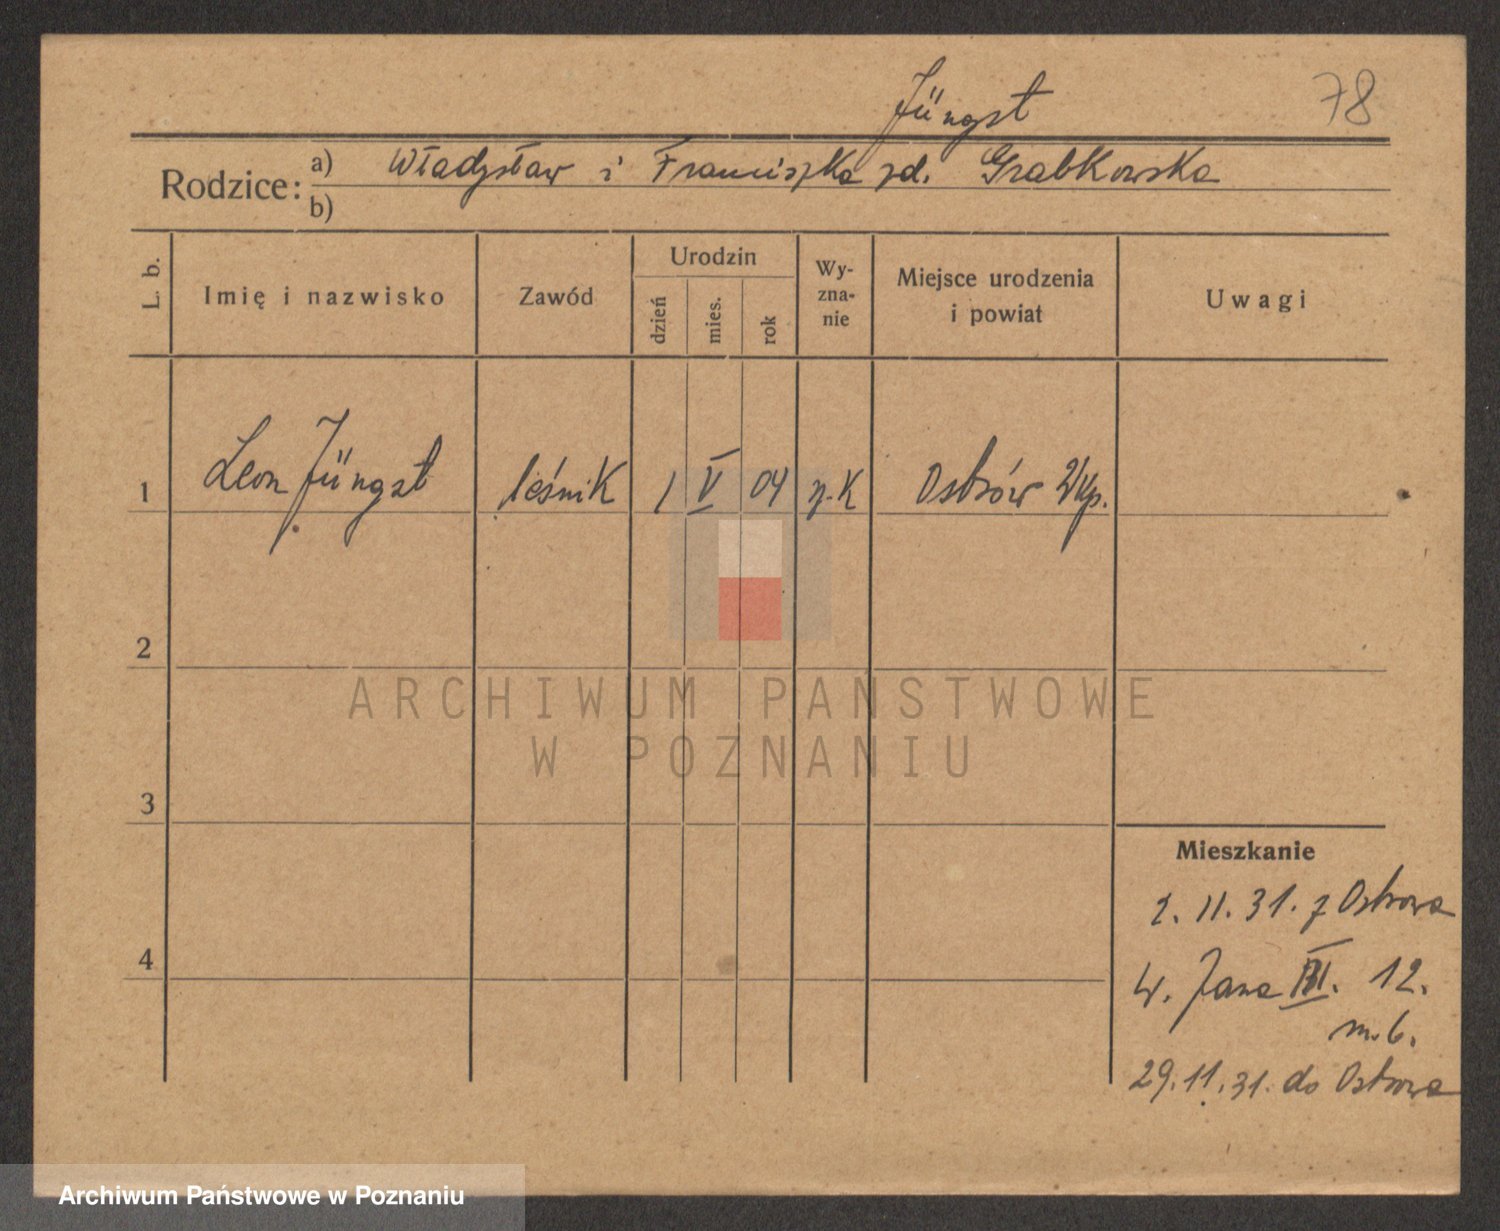 Jüngst
78
Rodzice:
a) Władysław i Franciszka zd. Grabkowska
b)
L. b.
Imię i nazwisko
Zawód
Urodzin
dzień
mies.
rok
Wy-
zna-
nie
Miejsce urodzenia
i powiat
Uwagi
1 Leon Jüngst leśnik 1 V 04 rz.-K Ostrów Wlkp.
2
3
4
Mieszkanie
2. 11. 31. z Ostrowa
W. Jana III. 12.
m. 6.
29. 11. 31. do Ostrowa
ARCHIWUM PAŃSTWOWE
W POZNANIU
Archiwum Państwowe w Poznaniu